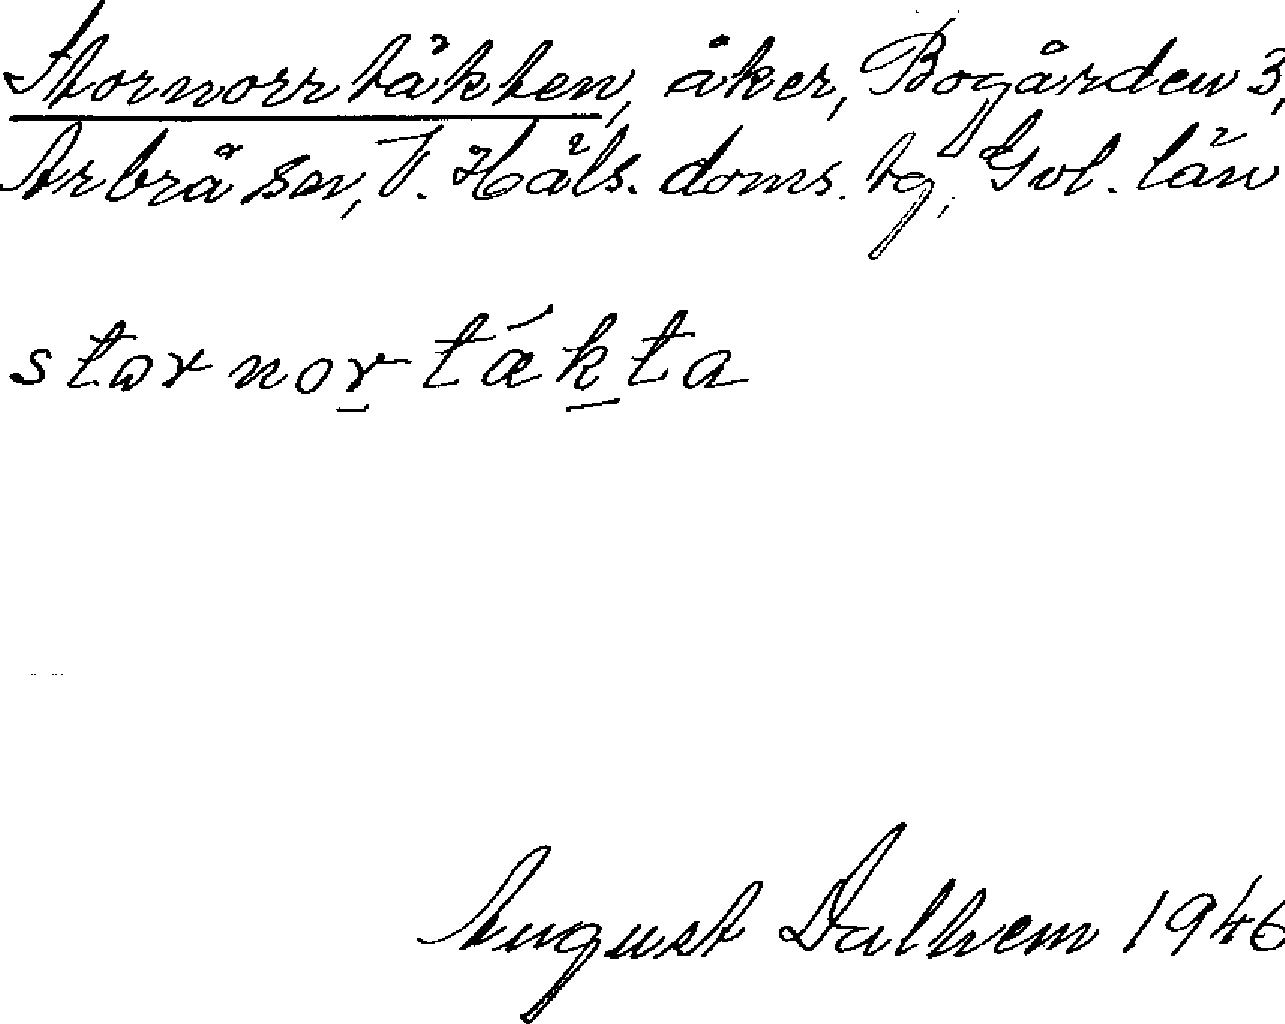 Stornorrtäkten, åker, Bogården 3,
Arbrå sn, V. Häls. doms. tg, Gvl. län
stornortǽkta
August Dalhem 1946